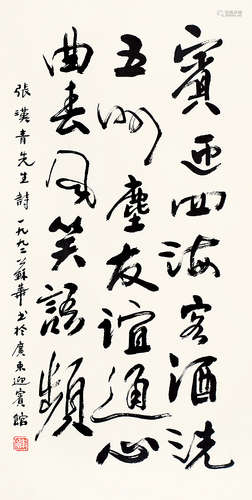 賓迎四海客酒洗
五州塵友誼通心
曲春风笑語頻
張漢青先生詩一九九二年蘇華书於廣東迎賓館